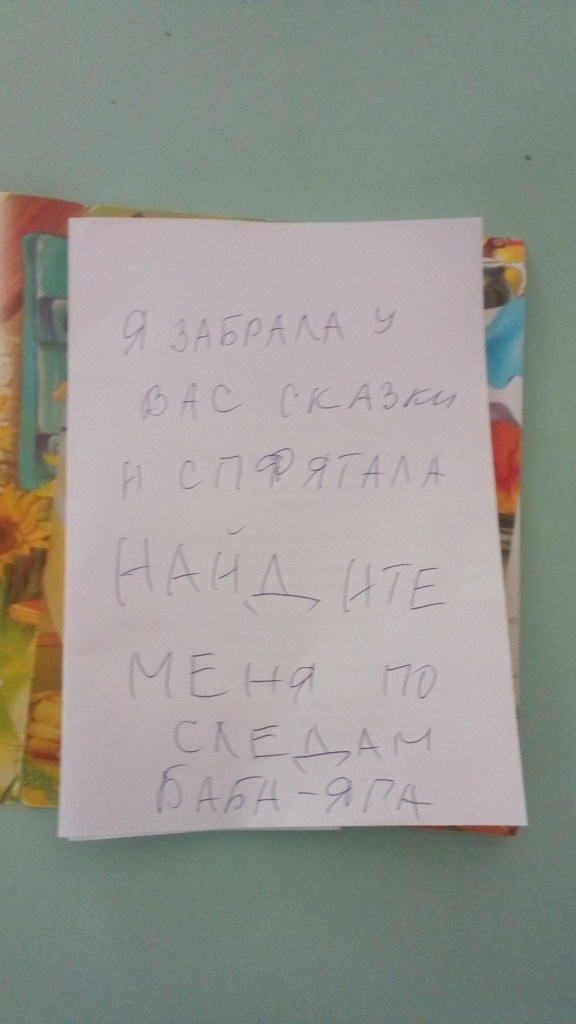 Я ЗАБРАЛА У
ВАС СКАЗКИ
И СПРЯТАЛА
НАЙДИТЕ
МЕНЯ ПО
СЛЕДАМ
БАБА-ЯГА